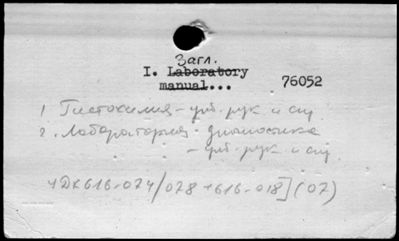 Загл.
I. Laboratory
manual...
76052
1 Гистохимия - учб. рук и сп
2. Лабораторная диагностика
- учб. рук и сп
УДК616-074/078+616-018](02)